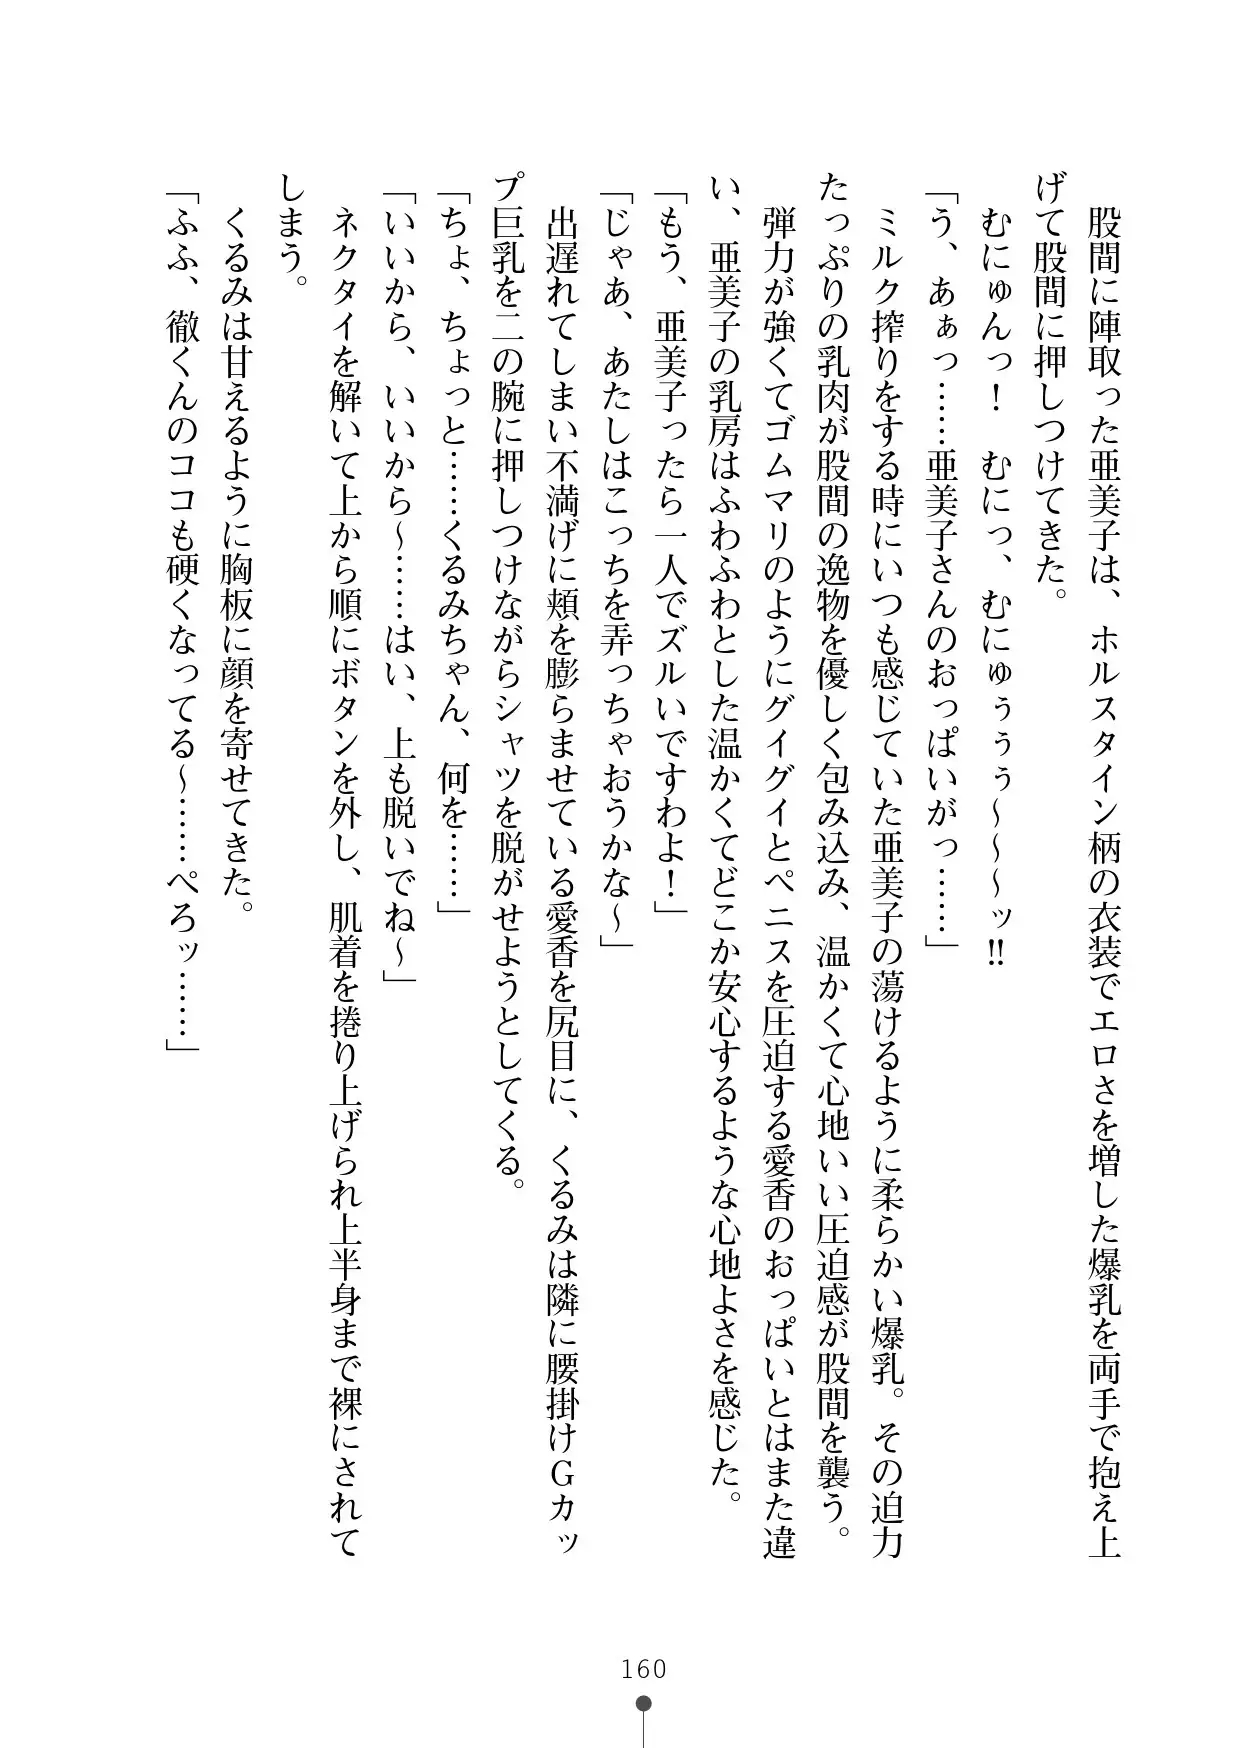 股間に陣取った亜美子は、ホルスタイン柄の衣装でエロさを増した爆乳を両手で抱え上
げて股間に押しつけてきた。
　むにゅんっ！　むにっ、むにゅぅぅぅ～～～ッ‼
「う、あぁっ……亜美子さんのおっぱいがっ……」
　ミルク搾りをする時にいつも感じていた亜美子の蕩けるように柔らかい爆乳。その迫力
たっぷりの乳肉が股間の逸物を優しく包み込み、温かくて心地いい圧迫感が股間を襲う。
　弾力が強くてゴムマリのようにグイグイとペニスを圧迫する愛香のおっぱいとはまた違
い、亜美子の乳房はふわふわとした温かくてどこか安心するような心地よさを感じた。
「もう、亜美子ったら一人でズルいですわよ！」
「じゃあ、あたしはこっちを弄っちゃおうかな～」
　出遅れてしまい不満げに頬を膨らませている愛香を尻目に、くるみは隣に腰掛けＧカッ
プ巨乳を二の腕に押しつけながらシャツを脱がせようとしてくる。
「ちょ、ちょっと……くるみちゃん、何を……」
「いいから、いいから～……はい、上も脱いでね～」
　ネクタイを解いて上から順にボタンを外し、肌着を捲り上げられ上半身まで裸にされて
しまう。
　くるみは甘えるように胸板に顔を寄せてきた。
「ふふ、徹くんのココも硬くなってる～……ぺろッ……」
160